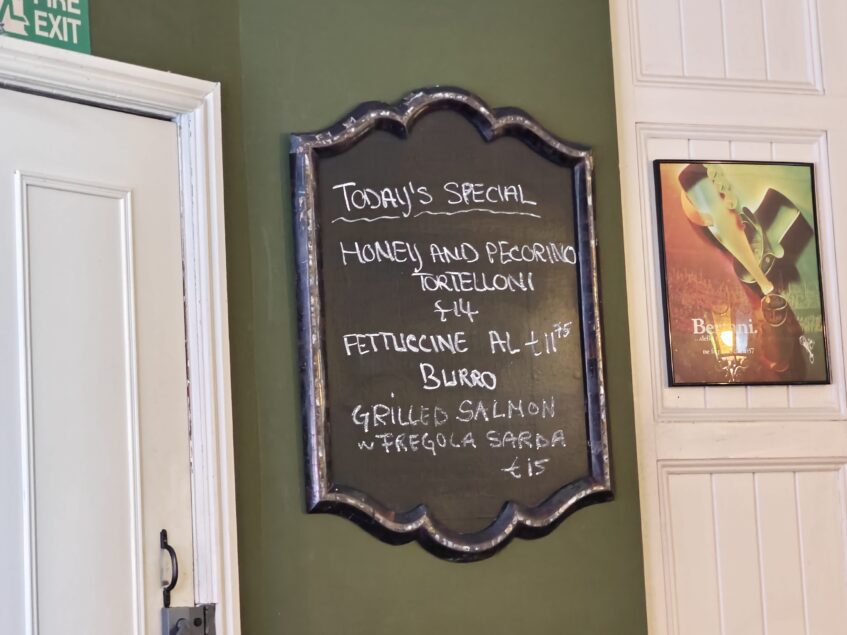 FIRE
EXIT
TODAY'S SPECIAL
HONEY AND PECORINO
TORTELLONI
£14
FETTUCCINE AL £11.75
BURRO
GRILLED SALMON
w FREGOLA SARDA
£15
Bertani.